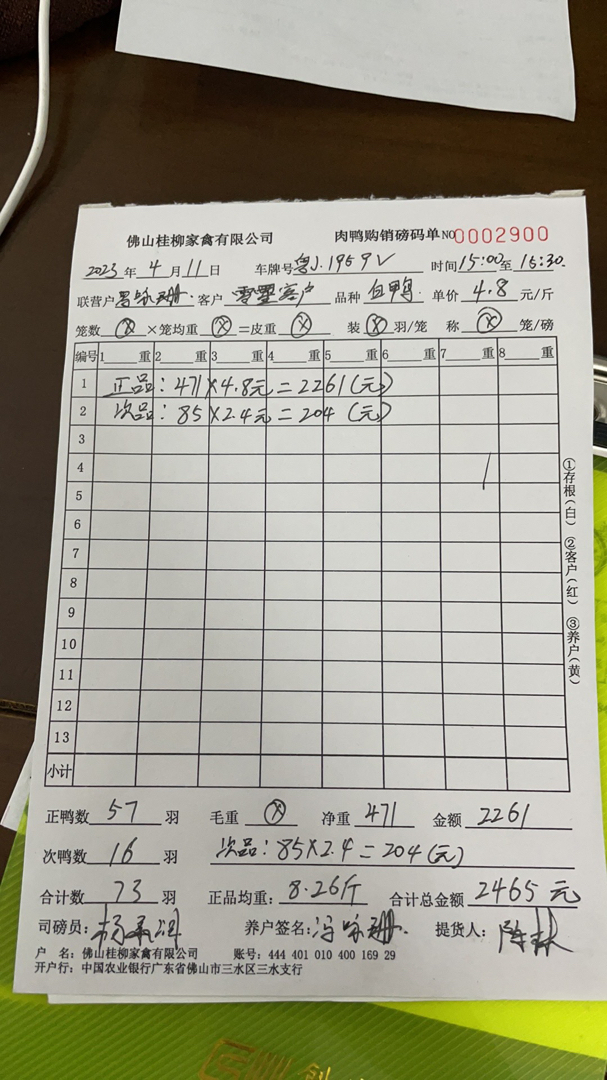 佛山桂柳家禽有限公司 肉鸭购销磅码单 NO 0002900
2023年4月11日 车牌号粤J.1959V 时间15:00至15:30.
联营户 咏珊. 客户 零星客户 品种 白鸭. 单价 4.8 元/斤
笼数 ⊗ ×笼均重 ⊗ =皮重 ⊗ 装 ⊗ 羽/笼 称 ⊗ 笼/磅
编号 1 重 2 重 3 重 4 重 5 重 6 重 7 重 8 重
1 正品: 471×4.8元=2261(元)
2 次品: 85×2.4元=204(元)
3
4
5
6
7
8
9
10
11
12
13
小计
①存根(白) ②客户(红) ③养户(黄)
正鸭数 57 羽 毛重 ⊗ 净重 471 金额 2261
次鸭数 16 羽 次品: 85×2.4=204(元)
合计数 73 羽 正品均重: 8.26斤 合计总金额 2465元
司磅员: 杨 养户签名: 冯咏珊. 提货人: 陈林
户 名: 佛山桂柳家禽有限公司 账号: 444 401 010 400 169 29
开户行: 中国农业银行广东省佛山市三水区三水支行